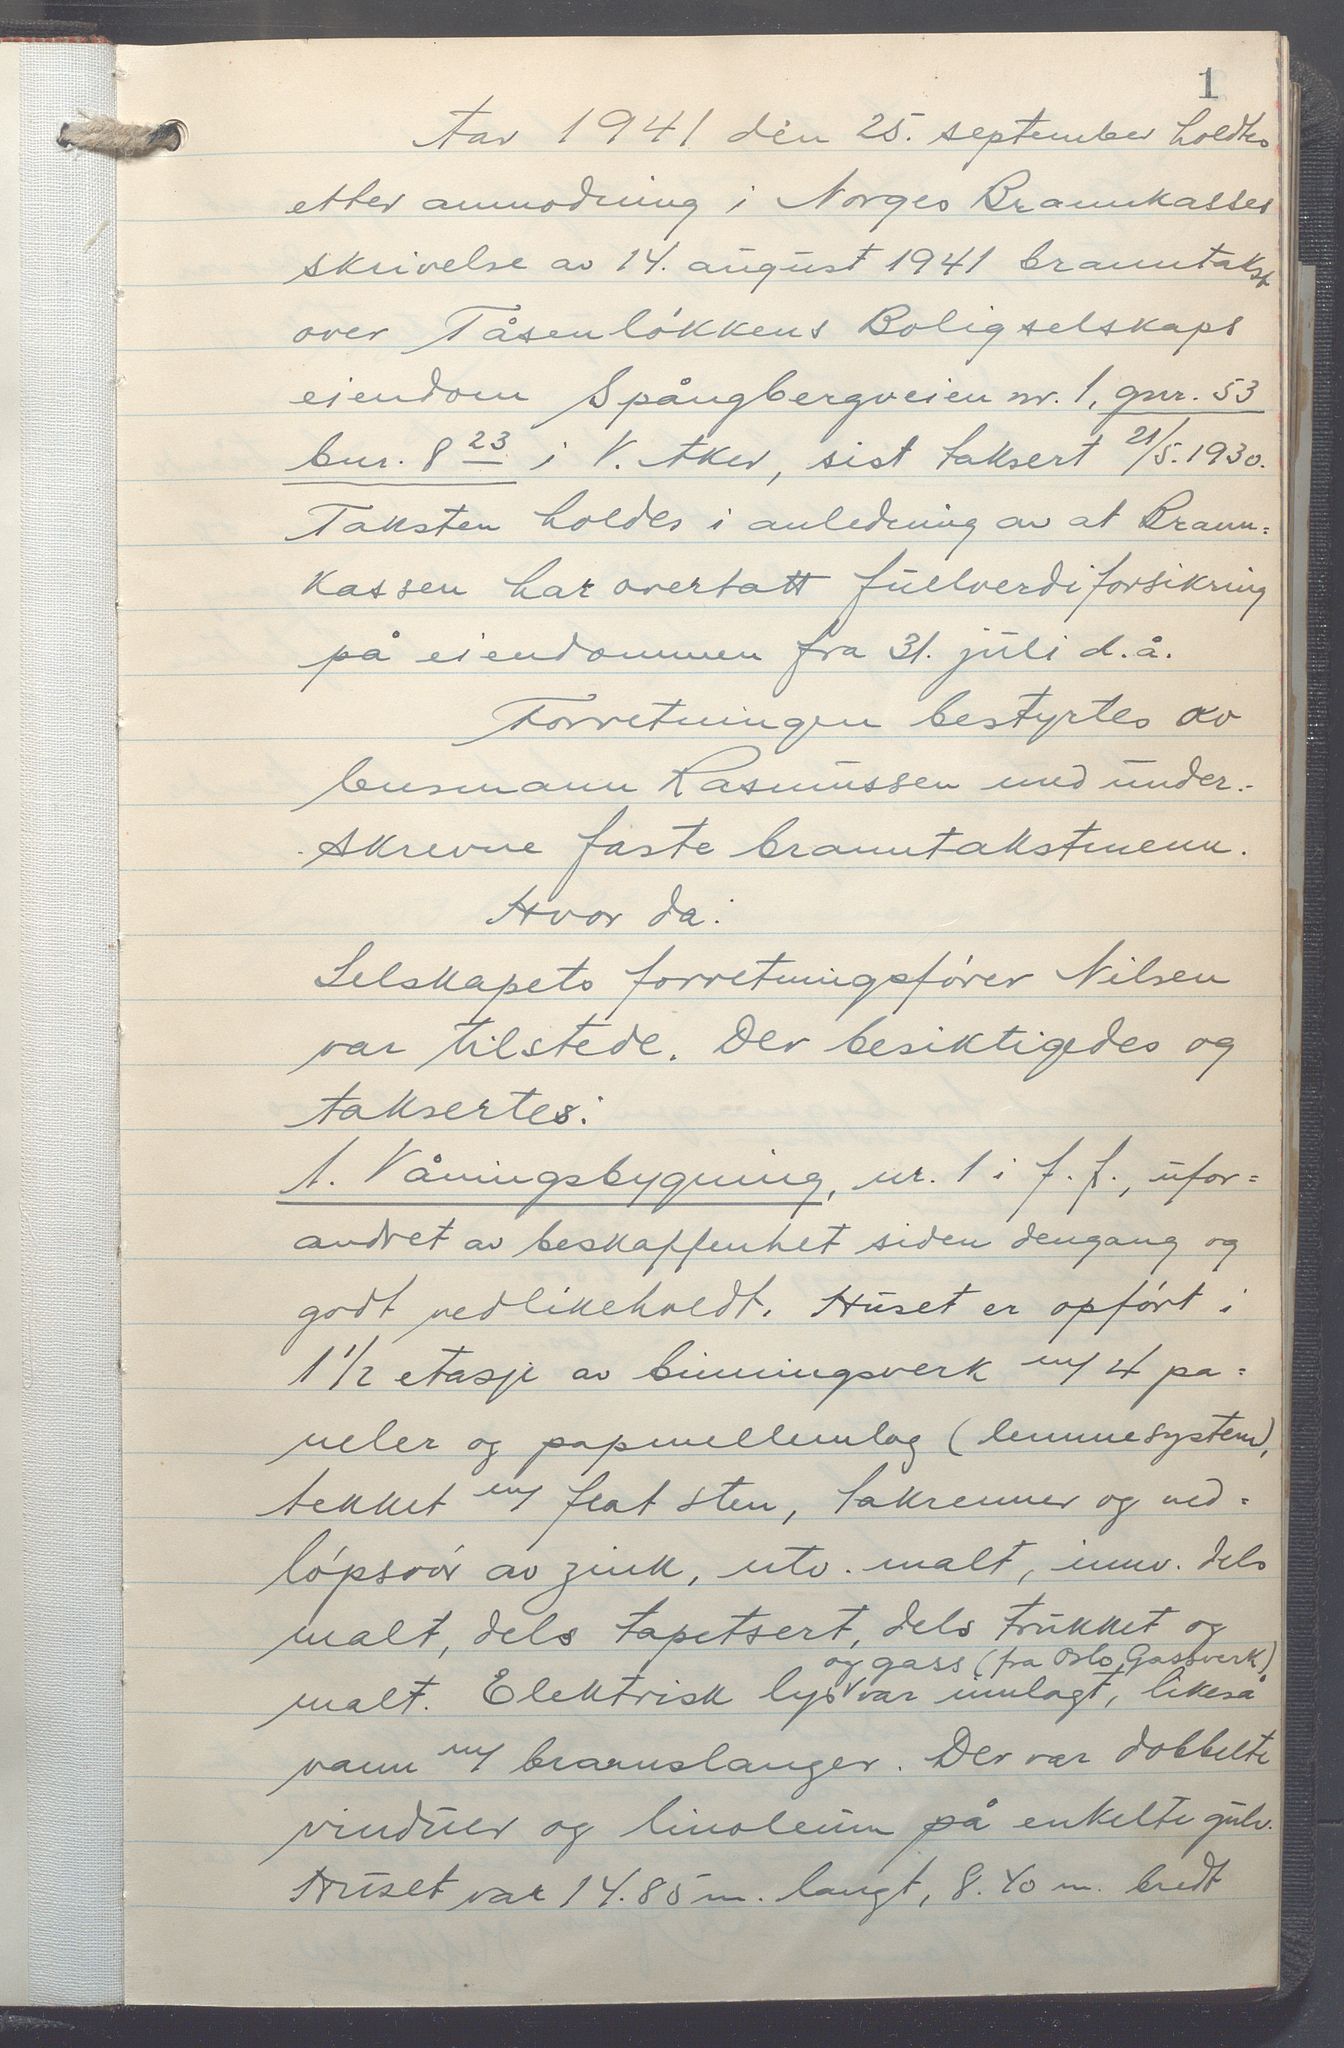 1
Aar 1941 den 25. september holdtes
etter anmodning i Norges Brannkasses
skrivelse av 14. august 1941 branntakst
over Tåsenløkkens Boligselskaps
eiendom Spångbergveien nr. 1, gnr. 53
bnr. 8 23 i V. Aker, sist taksert 21/5. 1930.
Taksten holdes i anledning av at Brann=
kassen har overtatt fullverdiforsikring
på eiendommen fra 31. juli d.å.
Forretningen bestyrtes av
lensmann Rasmussen med under=
skrevne faste branntakstmenn.
Hvor da:
Selskapets forretningsfører Nilsen
var tilstede. Der besiktigedes og
taksertes:
1. Våningsbygning, nr. 1 i f. f., ufor=
andret av beskaffenhet siden dengang og
godt vedlikeholdt. Huset er opført i
1 1/2 etasje av binningsverk m/ 4 pa=
neler og papmellemlag (lemmesystem),
tekket m/ flat sten, takrenner og ned=
løpsrør av zink, utv. malt, innv. dels
malt, dels tapetsert, dels trukket og
og gass (fra Oslo Gassverk)
malt. Elektrisk lys var innlagt, likeså
vann m/ brannslanger. Der var dobbelte
vinduer og linoleum på enkelte gulv.
Huset var 14.85 m. langt, 8.40 m. bredt